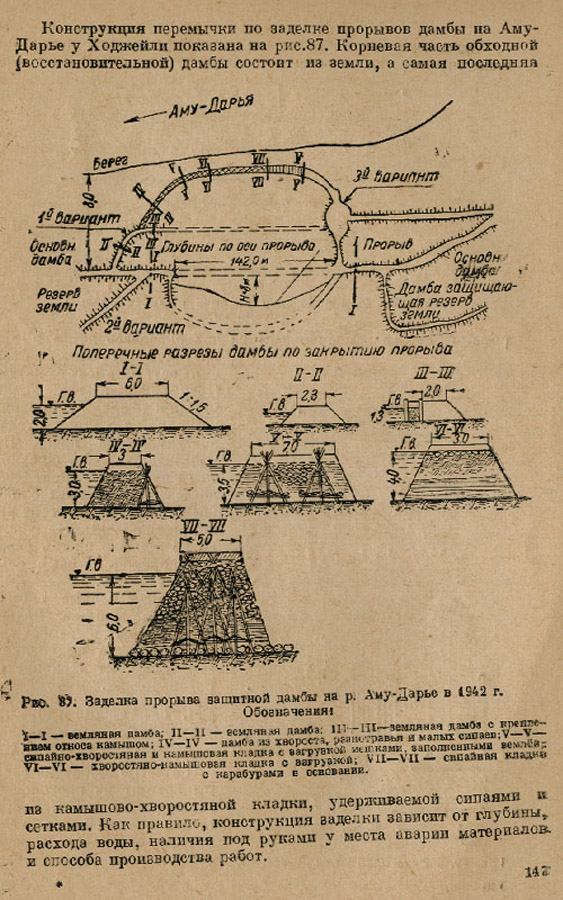 Конструкция перемычки по заделке прорывов дамбы на Аму-
Дарье у Ходжейли показана на рис.87. Корневая часть обходной
(восстановительной) дамбы состоит из земли, а самая последняя
Аму-Дарья
Берег
3й вариант
1й вариант
Основн
дамба
Глубины по оси прорыва
142,0м
Прорыв
Основн
дамба
Резерв
земли
2й вариант
Дамба защищаю-
щая резерв
земли
Поперечные разрезы дамбы по закрытию прорыва
I-I
6,0
Г.В.
2,0
1:1,5
II-II
2,3
Г.В.
III-III
2,0
Г.В.
1,3
IV-IV
3
Г.В.
3,0
V-V
7,0
Г.В.
3,5
VI-VI
3,0
Г.В.
4,0
VII-VII
5,0
Г.В
6,0
Рис. 87. Заделка прорыва защитной дамбы на р. Аму-Дарье в 1942 г.
Обозначения:
I—I — земляная дамба; II—II — земляная дамба; III—III—земляная дамба с крепле-
нием откоса камышом; IV—IV — дамба из хвороста, разнотравья и малых сипаев; V—V—
сипайно-хворостяная и камышовая кладка с загрузкой мешками, заполненными землёй;
VI—VI — хворостяно-камышовая кладка с загрузкой; VII—VII — сипайная кладка
с карабурами в основании.
из камышово-хворостяной кладки, удерживаемой сипаями и
сетками. Как правило, конструкция заделки зависит от глубины,
расхода воды, наличия под руками у места аварии материалов
и способа производства работ.
147